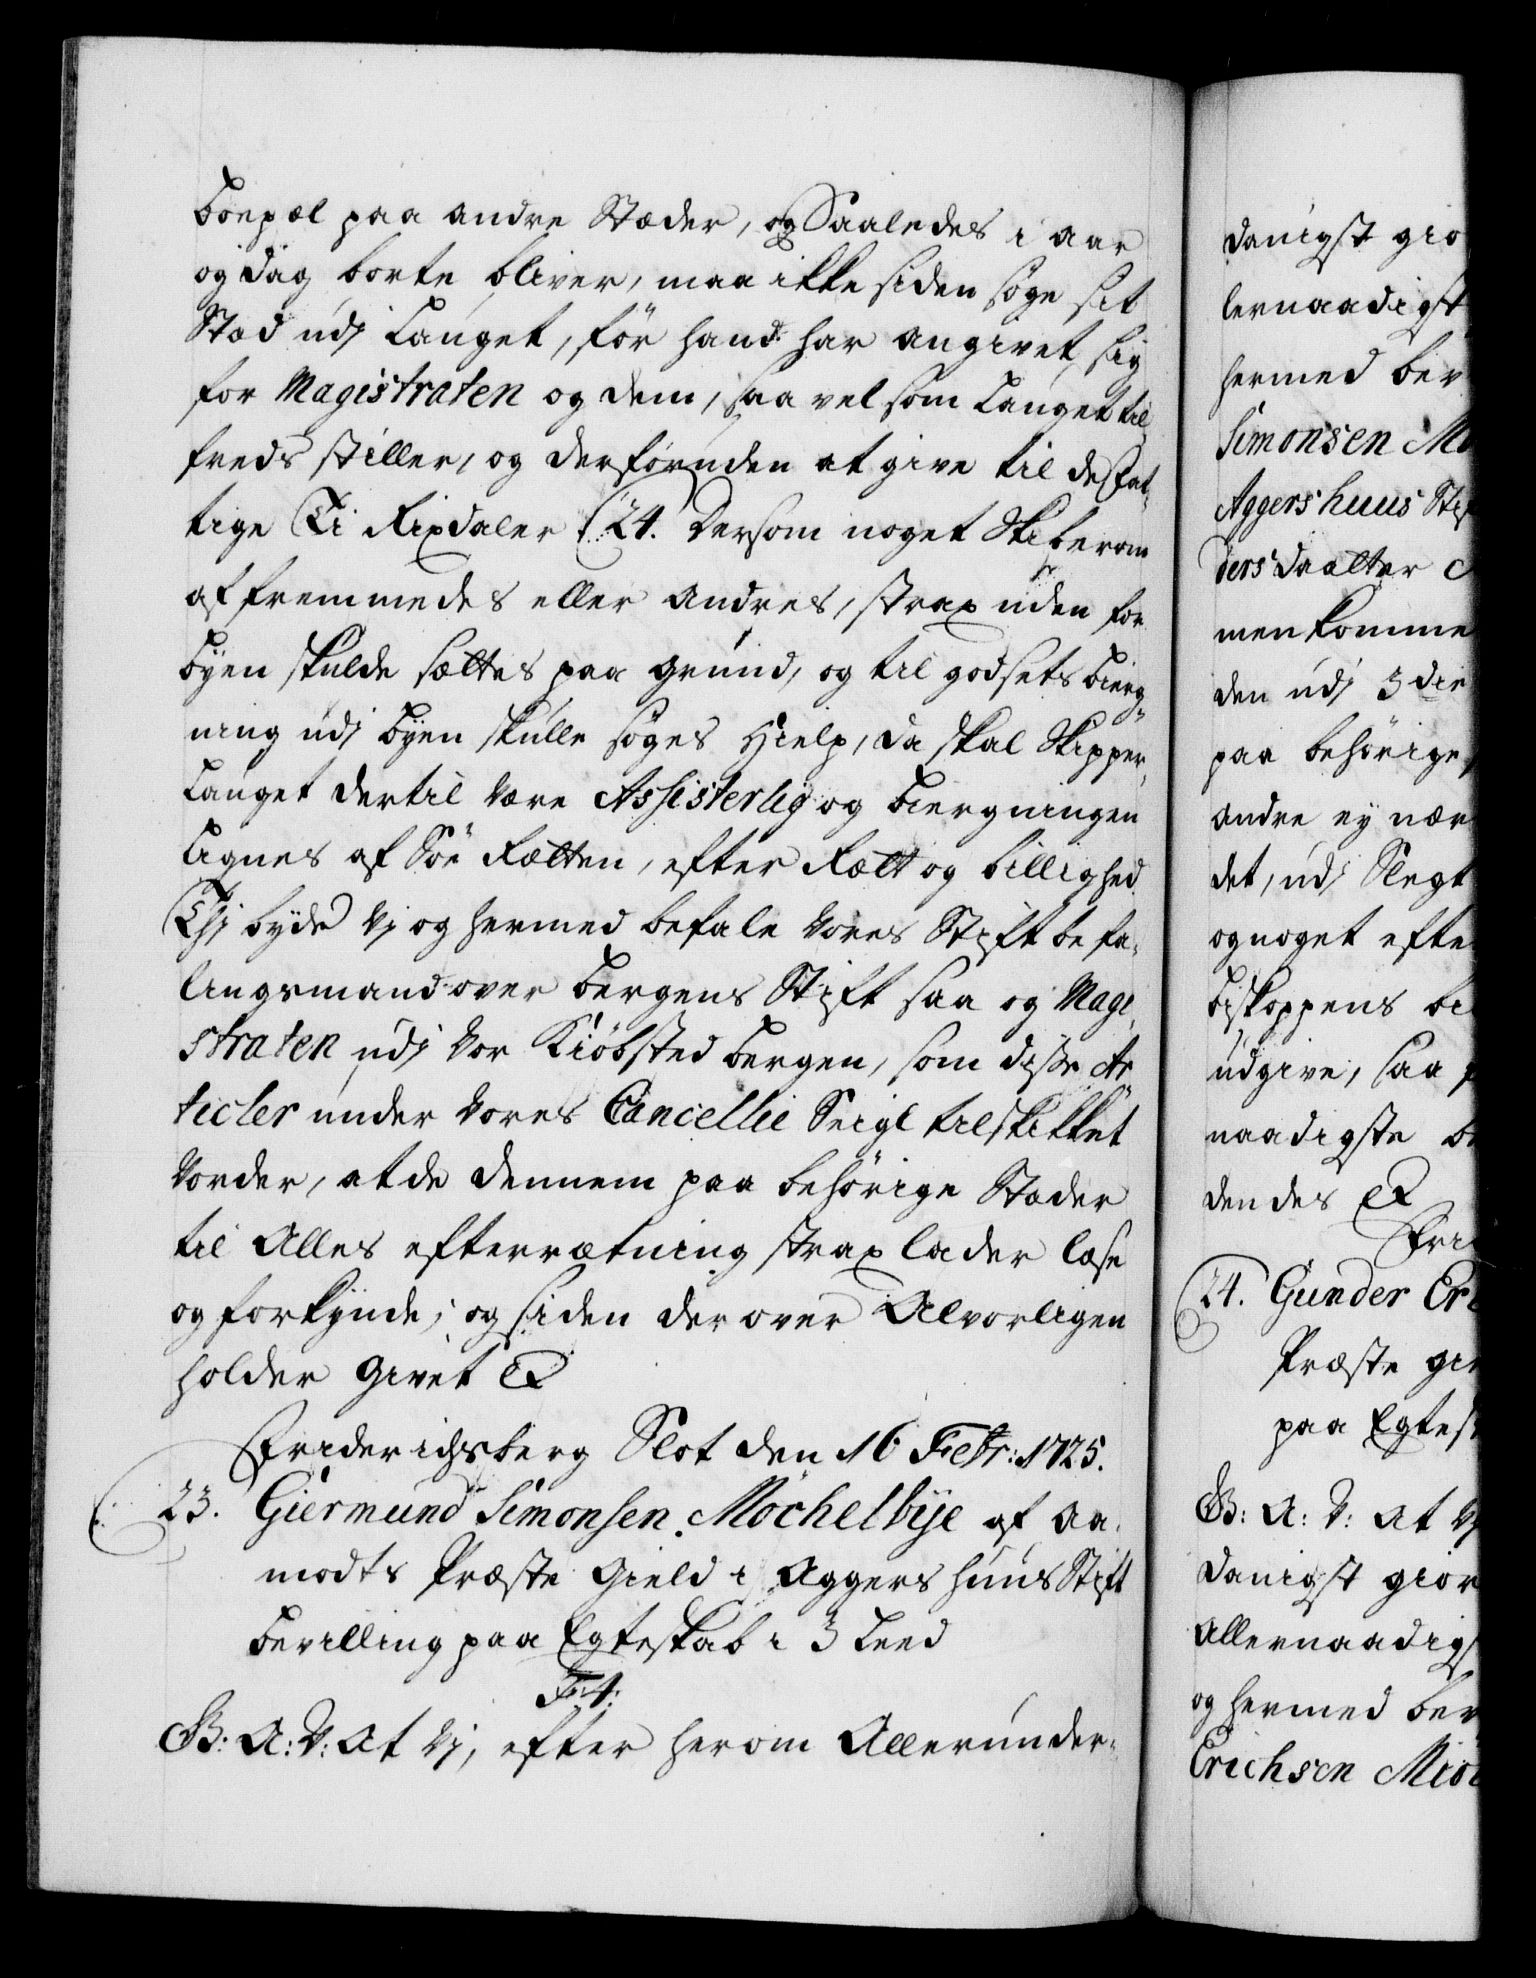 boepæl paa andre Stæder, og Saaledes i aar
og dag borte bliver, maa ikke siden søge sit
Stæd udj Lauget, før hand har angivet sig
for Magistraten og dem, saa vel som Lauget til
freds stiller, og derforuden at give til de fat-
tige Ti Rixdaler (24. Dersom noget Skiberom
af fremmedes eller andres, strax uden for
Byen skulde sættes paa grund, og til godsets bierg-
ning udj Byen skulle søges Hielp, da skal Skipper-
Lauget dertil være Assisterlig og biergningen
Lignes af Søe Rætten, efter Rætt og billighed
Thj byde Vj og hermed befale Vores Stiftbefa-
lingsmand over Bergens Stift saa og Magi
straten udj Vor Kiøbsted Bergen, som disse Ar
ticler under Vores Cancellie Seigl tilskikket
Vorder, at de dennem paa behørige Stæder
til Alles efterrætning strax lader læse
og forkynde; og siden derover Alvorligen
holder Givet &
Friderichsberg Slot den 16 Febr: 1725.
23. Giermund Simonsen Mochelbye af Aa-
modts Præste Gield i Aggershuus Stift
Bevilling paa Egteskab i 3 Leed
F: 4:
G: A: V: At Vj, efter herom Allerunder-
danigst gio
lernaadigst
hermed bev
Simonsen Mo
Aggershuus Stif
ders daatter
men komme
den udj 3die
paa behørige
andre ey nær
det, udj Slegt
og noget efte
biskoppens bi
udgive, saa
naadigste be
dendes &
Fri
24. Gunder Eri
Præste gi
paa Egtesk
G: A: V: At Vj
danigst gior
Allernaadigs
og hermed bev
Erichsen Mio